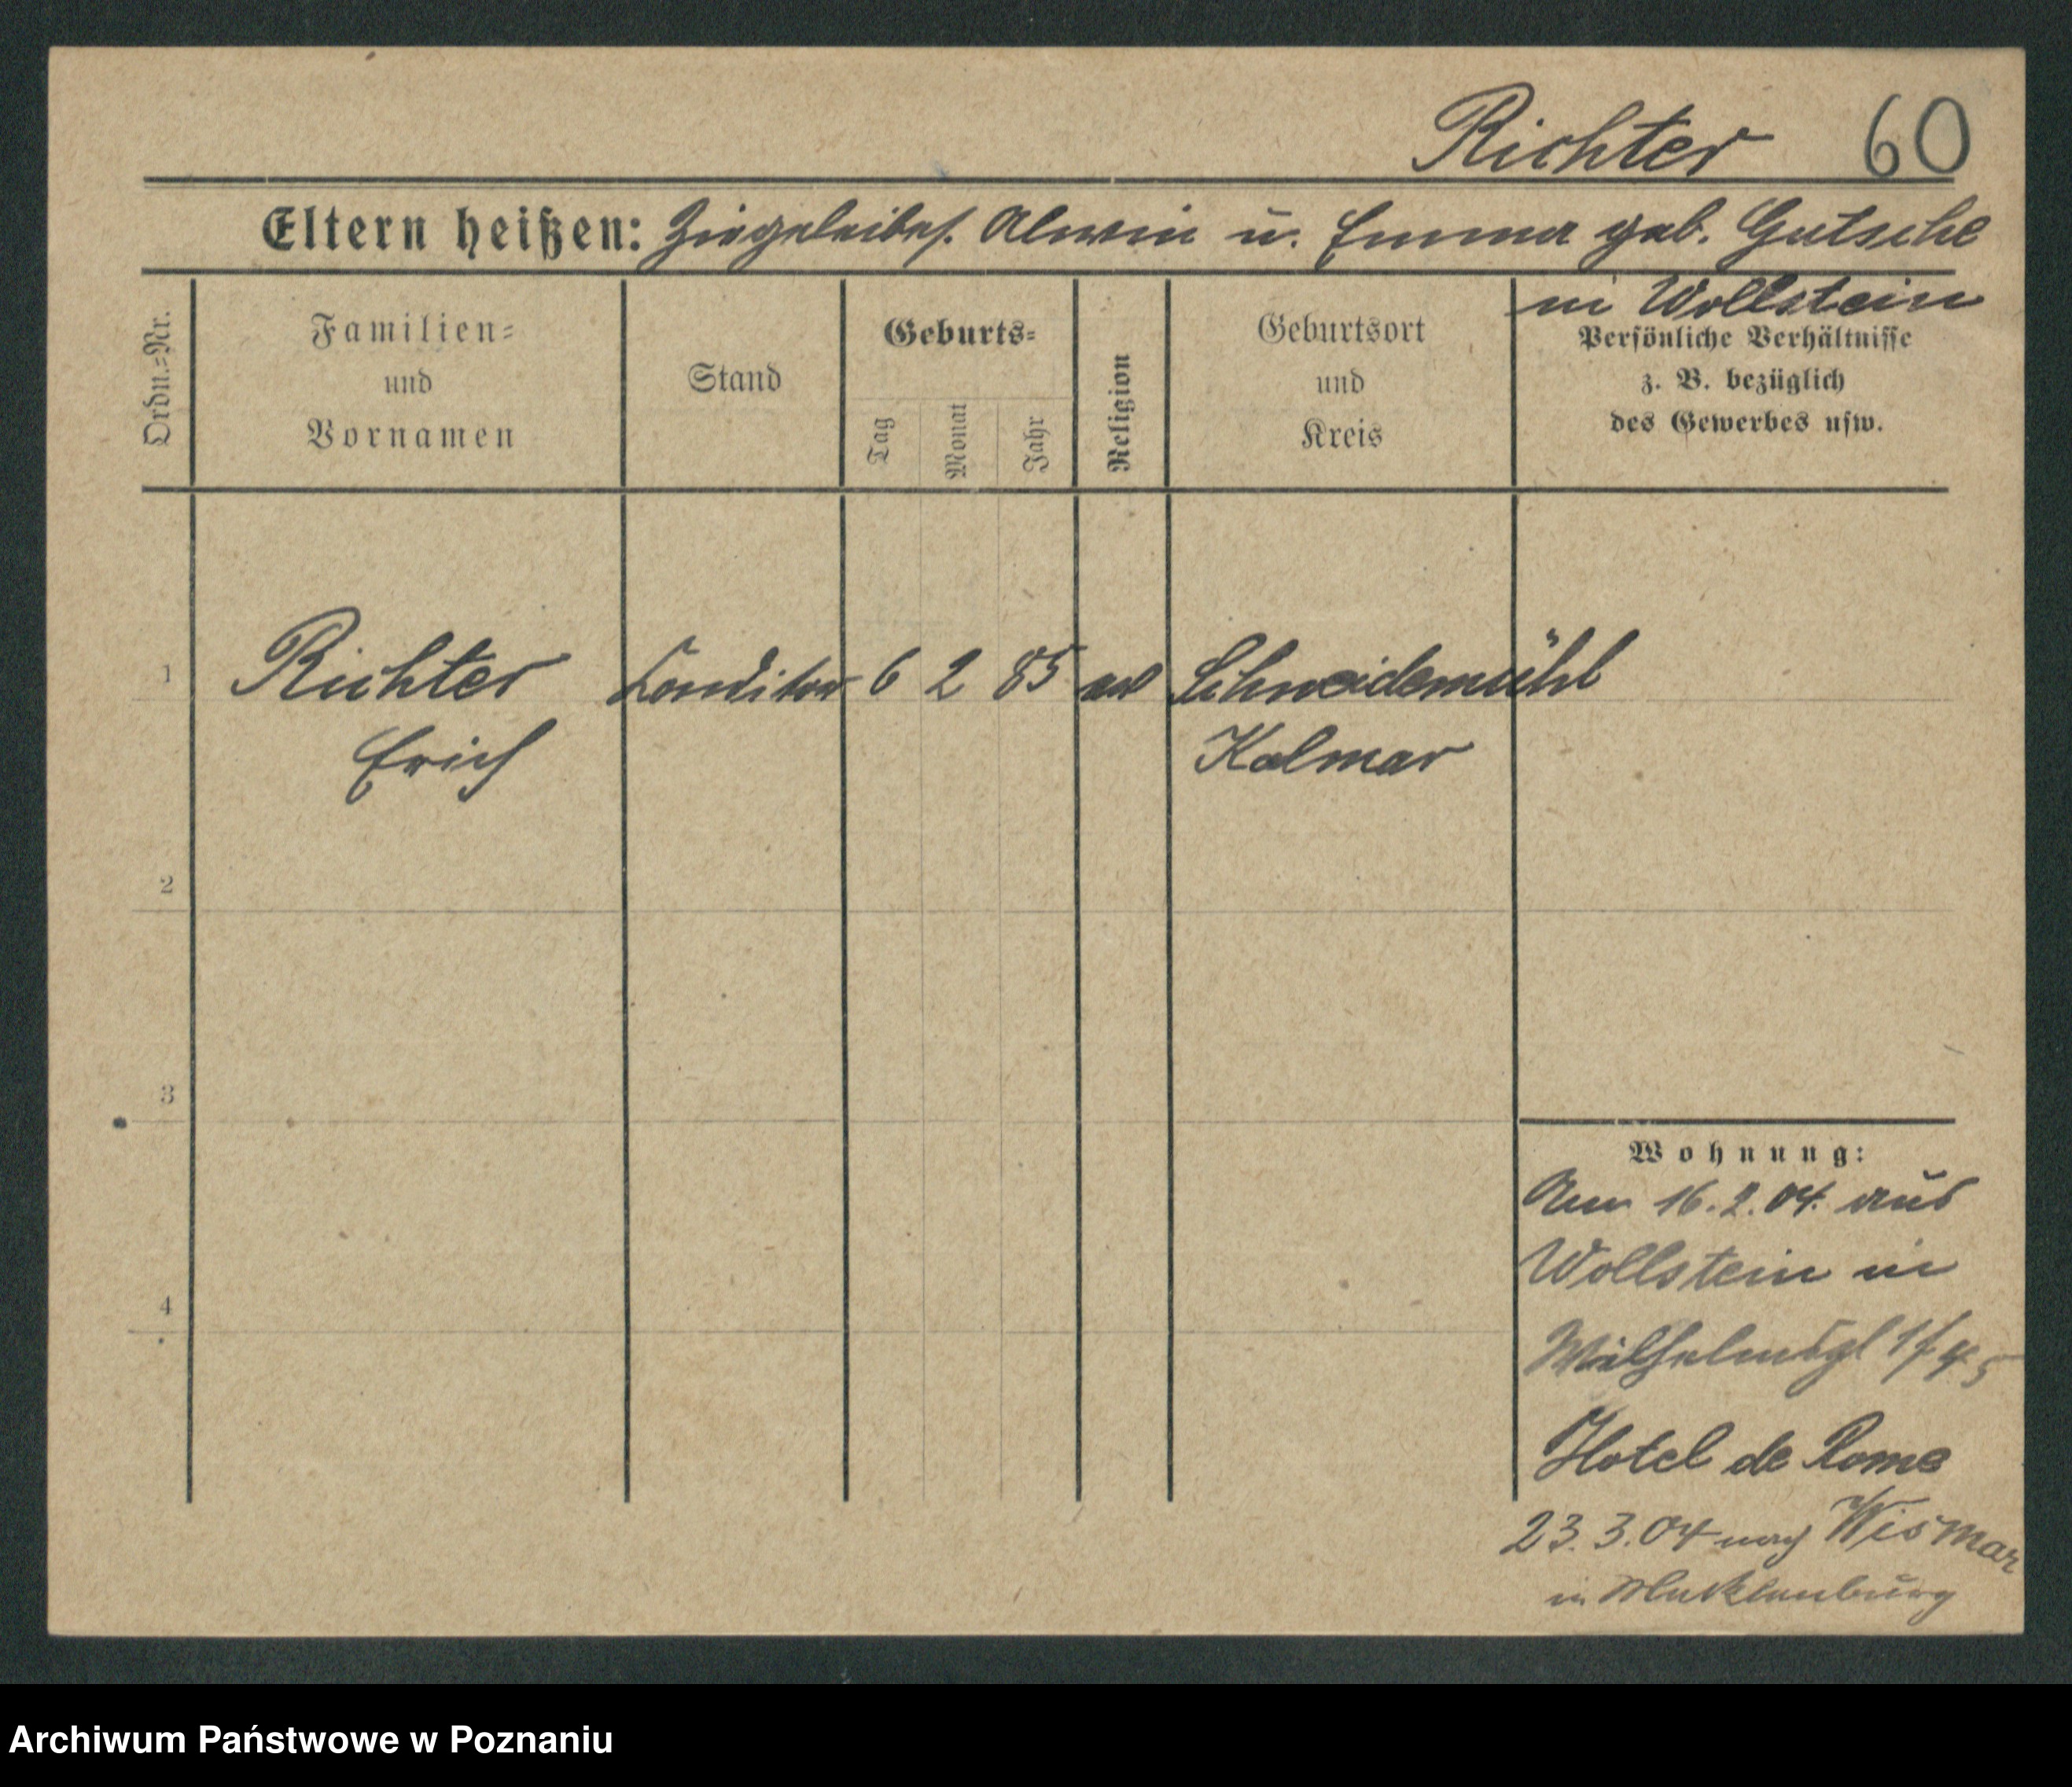 Richter 60
Eltern heißen: Ziegeleibes. Alwin u. Emma geb. Gutsche
in Wollstein
Ordn.=Nr.
Familien=
und
Vornamen
Stand
Geburts=
Tag
Monat
Jahr
Religion
Geburtsort
und
Kreis
Persönliche Verhältnisse
z. B. bezüglich
des Gewerbes usw.
1 Richter Conditor 6 2 85 ev Schneidemühl
Erich Kolmar
2
3
4
Wohnung:
Am 16.2.04. aus
Wollstein in
Hotel de Rome
23.3.04 nach Wismar
in Mecklenburg
Archiwum Państwowe w Poznaniu